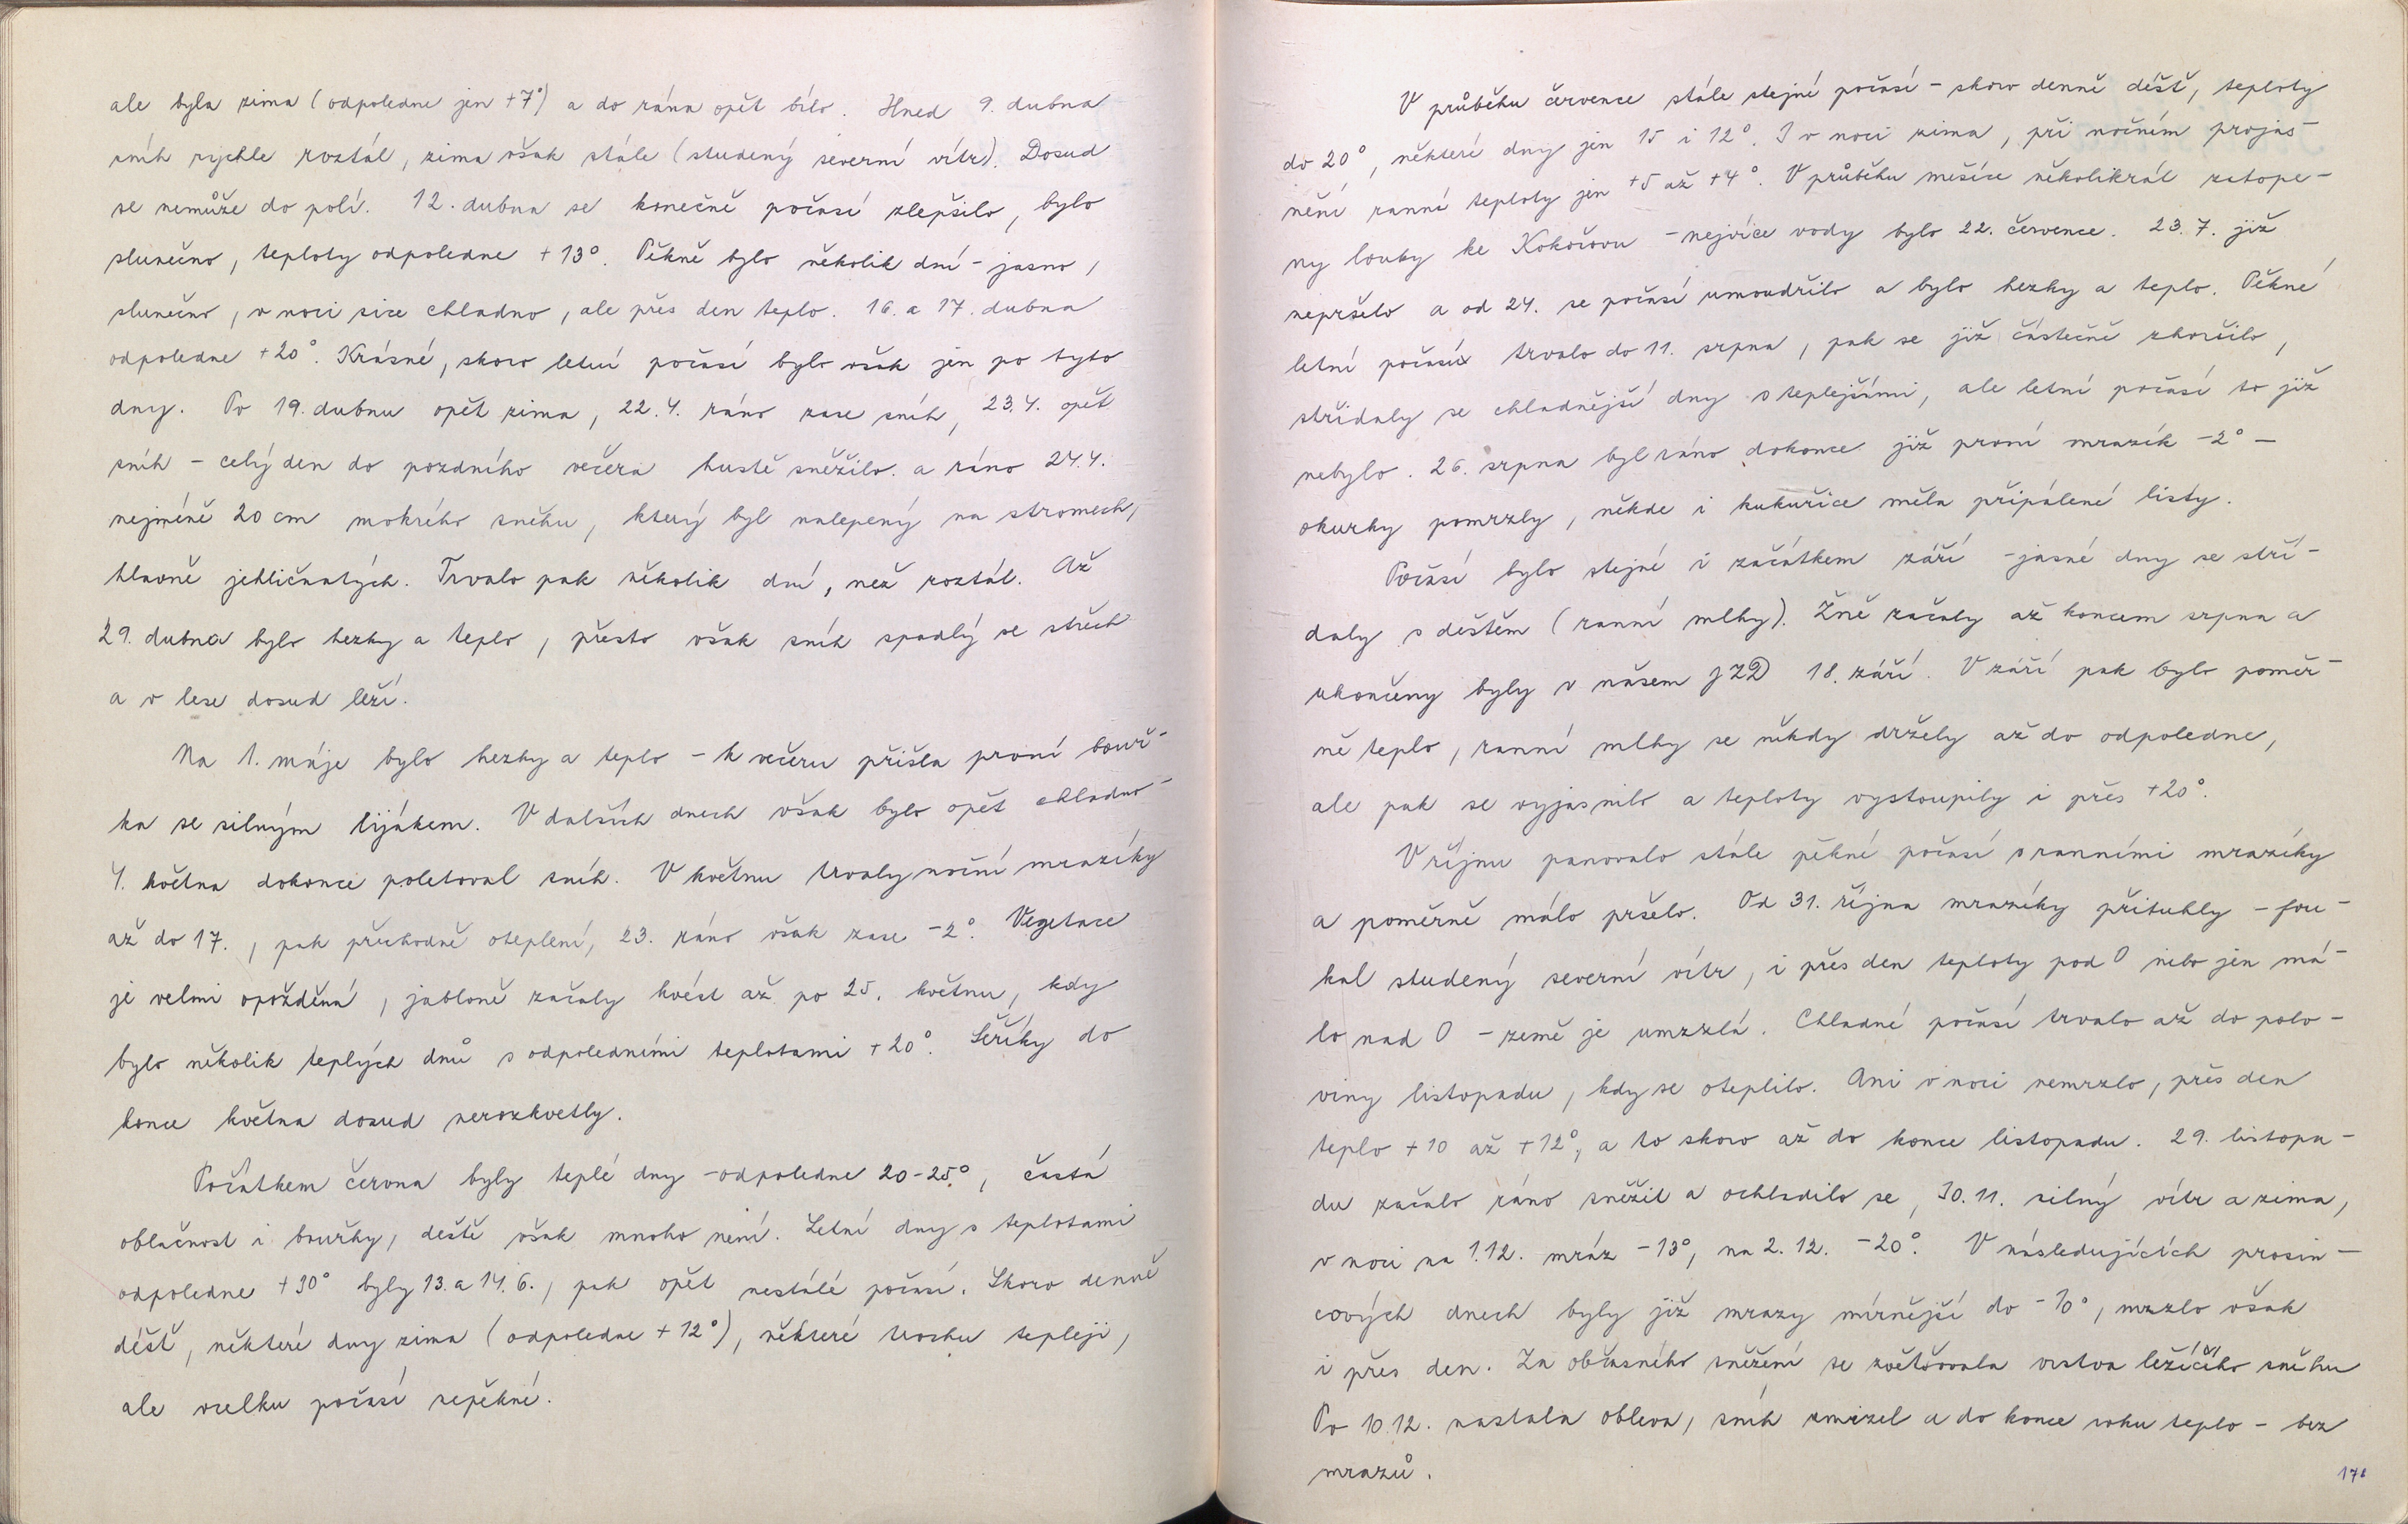 ale byla zima (odpoledne jen +7°) a do rána opět bílo. Hned 9. dubna
sníh rychle roztál, zima však stále (studený severní vítr). Dosud
se nemůže do polí. 12. dubna se konečně počasí zlepšilo, bylo
slunečno, teploty odpoledne +13°. Pěkně bylo několik dní - jasno,
slunečno, v noci sice chladno, ale přes den teplo. 16. a 17. dubna
odpoledne +20°. Krásné, skoro letní počasí bylo však jen po tyto
dny. Po 19. dubnu opět zima, 22.4. ráno zase sníh, 23.4. opět
sníh - celý den do pozdního večera hustě sněžilo. a ráno 24.4.
nejméně 20 cm mokrého sněhu, který byl nalepený na stromech,
hlavně jehličnatých. Trvalo pak několik dní, než roztál. Až
29. dubna bylo hezky a teplo, přesto však sníh spadlý se střech
a v lese dosud leží.
Na 1. máje bylo hezky a teplo - k večeru přišla první bouř-
ka se silným lijákem. V dalších dnech však bylo opět chladno -
4. května dokonce poletoval sníh. V květnu trvaly noční mrazíky
až do 17., pak přechodně oteplení, 23. ráno však zase -2°. Vegetace
je velmi opožděná, jabloně začaly kvést až po 25. květnu, kdy
bylo několik teplých dnů s odpoledními teplotami +20°. Šeříky do
konce května dosud nerozkvetly.
Počátkem června byly teplé dny - odpoledne 20-25°, častá
oblačnost i bouřky, deště však mnoho není. Letní dny s teplotami
odpoledne +30° byly 13. a 14.6., pak opět nestálé počasí. Skoro denně
déšť, některé dny zima (odpoledne +12°), některé trochu tepleji,
ale vcelku počasí nepěkné.
V průběhu července stále stejné počasí - skoro denně déšť, teploty
do 20°, některé dny jen 15 i 12°. I v noci zima, při nočním projas-
nění ranní teploty jen +5 až +4°. V průběhu měsíce několikrál zatope-
ny louky ke Kokořovu - nejvíce vody bylo 22. července. 23.7. již
nepršelo a od 24. se počasí umoudřilo a bylo hezky a teplo. Pěkné
letní počasí trvalo do 11. srpna, pak se již částečně zhoršilo,
střídaly se chladnější dny s teplejšími, ale letní počasí to již
nebylo. 26. srpna byl ráno dokonce již první mrazík -2° -
okurky pomrzly, někde i kukuřice měla připálené listy.
Počasí bylo stejné i začátkem září - jasné dny se stří-
daly s deštěm (ranní mlhy). Žně začaly až koncem srpna a
ukončeny byly v našem JZD 18. září. V září pak bylo poměr-
ně teplo, ranní mlhy se někdy držely až do odpoledne,
ale pak se vyjasnilo a teploty vystoupily i přes +20°.
V říjnu panovalo stále pěkné počasí s ranními mrazíky
a poměrně málo pršelo. Od 31. října mrazíky přituhly - fou-
kal studený severní vítr, i přes den teploty pod 0 nebo jen má-
lo nad 0 - země je umrzlá. Chladné počasí trvalo až do polo-
viny listopadu, kdy se oteplilo. Ani v noci nemrzlo, přes den
teplo +10 až +12°, a to skoro až do konce listopadu. 29. listopa-
du začalo ráno sněžit a ochladilo se, 30.11. silný vítr a zima,
v noci na 1.12. mráz -13°, na 2.12. -20°. V následujících prosin-
cových dnech byly již mrazy mírnější do -10°, mrzlo však
i přes den. Za občasného sněžení se zvětšovala vrstva ležícího sněhu
Po 10.12. nastala obleva, sníh zmizel a do konce roku teplo - bez
mrazů.